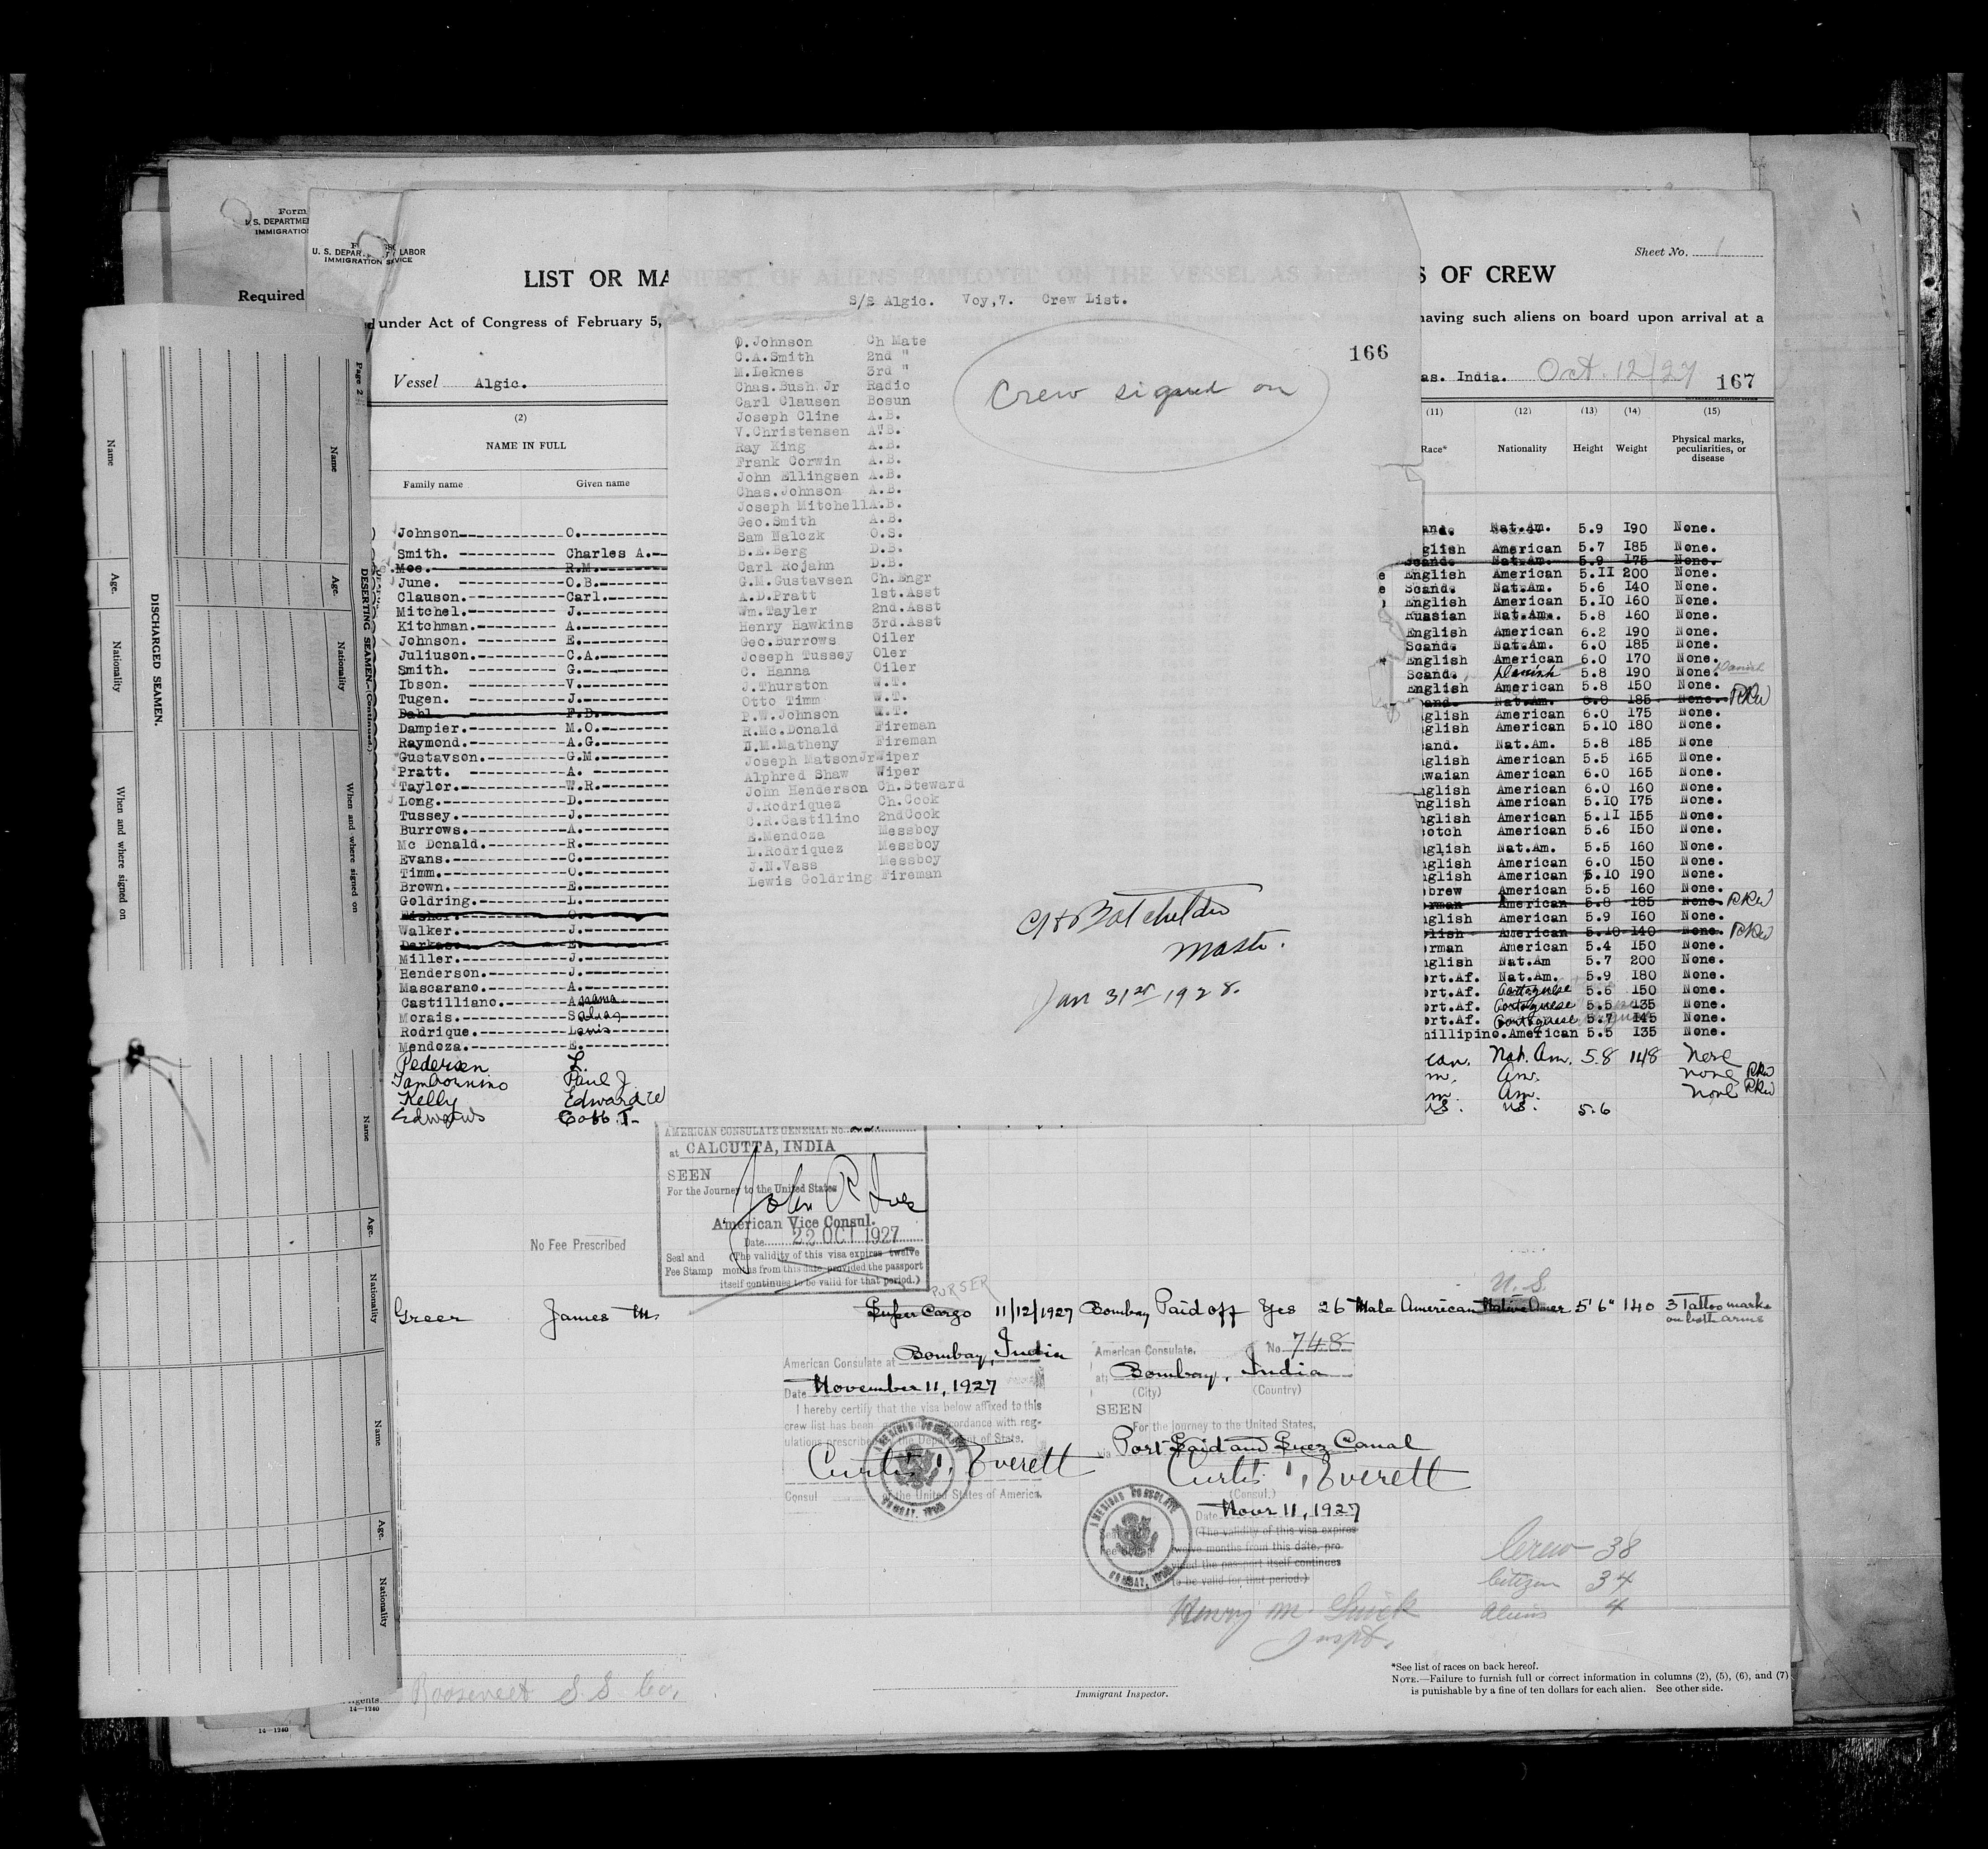 Form
U. S. DEPARTME
IMMIGRATIO
Required
U. S. DEPAR LABOR
IMMIGRATION SERVICE
LIST OR MA
S OF CREW
Sheet No. 1
under Act of Congress of February 5,
having such aliens on board upon arrival at a
Vessel Algic.
as. India. Oct. 12/27 167
S/S Algic. Voy,7. Crew List.
166
Crew signed on
O.Johnson Ch Mate
C.A.Smith 2nd "
M.Leknes 3rd "
Chas.Bush Jr Radio
Carl Clausen Bosun
Joseph Cline A.B.
V.Christensen A"B.
Ray King A.B.
Frank Corwin A.B.
John Ellingsen A.B.
Chas.Johnson A.B.
Joseph MitchellA.B.
Geo.Smith A.B.
Sam Walczk O.S.
B.E.Berg D.B.
Carl Rojahn D.B.
G.M.Gustavsen Ch.Engr
A.D.Pratt 1st.Asst
Wm.Tayler 2nd.Asst
Henry Hawkins 3rd.Asst
Geo.Burrows Oiler
Joseph Tussey Oler
C. Hanna Oiler
J.Thurston W.T.
Otto Timm W.T.
P.W.Johnson W.T.
R.Mc.Donald Fireman
H.M.Matheny Fireman
Joseph MatsonJrWiper
Alphred Shaw Wiper
John Henderson Ch.Steward
J.Rodriquez Ch.Cook
C.R.Castilino 2ndCook
E.Mendoza Messboy
L.Rodriquez Messboy
J.N.Vass Messboy
Lewis Goldring Fireman
Master.
Jan 31st 1928.
(2)
NAME IN FULL
Family name Given name
(11) (12) (13) (14) (15)
Race* Nationality Height Weight Physical marks, peculiarities, or disease
Johnson O.
Smith. Charles A.
Moe. R.M.
June. O.B.
Clauson. Carl.
Mitchel. J.
Kitchman. A.
Johnson. E.
Juliuson. C.A.
Smith. G.
Ibson. V.
Tugen. J.
Dahl F.D.
Dampier. M.O.
Raymond. A.G.
Gustavson. G.M.
Pratt. A.
Taylor. W.R.
Long. D.
Tussey. J.
Burrows. A.
Mc Donald. R.
Evans. C.
Timm. O.
Brown. E.
Goldring. L.
Fisher. O.
Walker. J.
Darkason. E.
Miller. J.
Henderson. J.
Mascarano. A.
Castilliano. A
Morais. S
Rodrique. Louis
Mendoza. E.
Pedersen L.
Tambornino Paul J.
Kelly Edward W
Edwards Cobb. T.
and. Nat.Am. 5.9 190 None.
glish American 5.7 185 None.
Scand. Nat.Am. 5.9 175 None.
English American 5.11 200 None.
Scand. Nat.Am. 5.6 140 None.
English American 5.10 160 None.
Russian Nat.Am. 5.8 160 None.
English American 6.2 190 None.
Scand. Nat.Am. 6.0 185 None.
English American 6.0 170 None.
Scand. Danish 5.8 190 None. Danish
English American 5.8 150 None.
and. Nat.Am. 6.0 185 None. RRW
glish American 6.0 175 None.
glish American 5.10 180 None.
and. Nat.Am. 5.8 185 None
glish American 5.5 165 None.
waian American 6.0 165 None.
glish American 6.0 160 None.
nglish American 5.10 175 None.
glish American 5.11 155 None.
cotch American 5.6 150 None.
glish Nat.Am. 5.5 160 None.
glish American 6.0 150 None.
glish American 5.10 190 None.
brew American 5.5 160 None.
rman American 5.8 185 None. RRW
nglish American 5.9 160 None.
lish American 5.10 140 None. RRW
erman American 5.4 150 None.
nglish Nat.Am 5.7 200 None.
ort.Af. Nat.Am. 5.9 180 None.
ort.Af. Portuguese 5.6 150 None.
ort.Af. Portuguese 5.5 135 None.
ort.Af. Portuguese 5.7 145 None.
hillipino.American 5.5 135 None.
can. Nat. Am. 5.8 148 None
m. Am. none RRW
m. Am. None RRW
US. US. 5.6
AMERICAN CONSULATE GENERAL No.
at CALCUTTA, INDIA
SEEN
For the Journey to the United States
American Vice Consul.
Date 22 OCT 1927
Seal and Fee Stamp (The validity of this visa expires twelve
months from this date, provided the passport
itself continues to be valid for that period.)
No Fee Prescribed
PURSER
U.S.
Greer James M. Super Cargo 11/12/1927 Bombay Paid off Yes 26 Male American Native Amer 5'6" 140 3 Tattoo marks
on both arms
American Consulate at Bombay, India
Date November 11, 1927
I hereby certify that the visa below affixed to this
crew list has been accordance with reg-
ulations prescribed by the Department of State.
Curtis T. Everett
Consul of the United States of America.
AMERICAN CONSULATE
BOMBAY, INDIA
American Consulate. No. 748
at Bombay, India
(City) (Country)
SEEN
For the journey to the United States,
via Port Said and Suez Canal
Curtis T. Everett
(Consul.)
Date Novr 11, 1927
(The validity of this visa expires
twelve months from this date, pro-
vided the passport itself continues
to be valid for that period.)
AMERICAN CONSULATE
BOMBAY, INDIA
Crew 38
Citizen 34
Aliens 4
Henry M.
Inspt.
*See list of races on back hereof.
NOTE.—Failure to furnish full or correct information in columns (2), (5), (6), and (7)
is punishable by a fine of ten dollars for each alien. See other side.
Immigrant Inspector.
Agents Roosevelt S.S. Co.
14—1240
14—1240
Page 2
DESERTING SEAMEN.—(Continued.)
Name Age. Nationality When and where signed on
DISCHARGED SEAMEN.
Name Age. Nationality When and where signed on
Name Age. Nationality
Name Age. Nationality